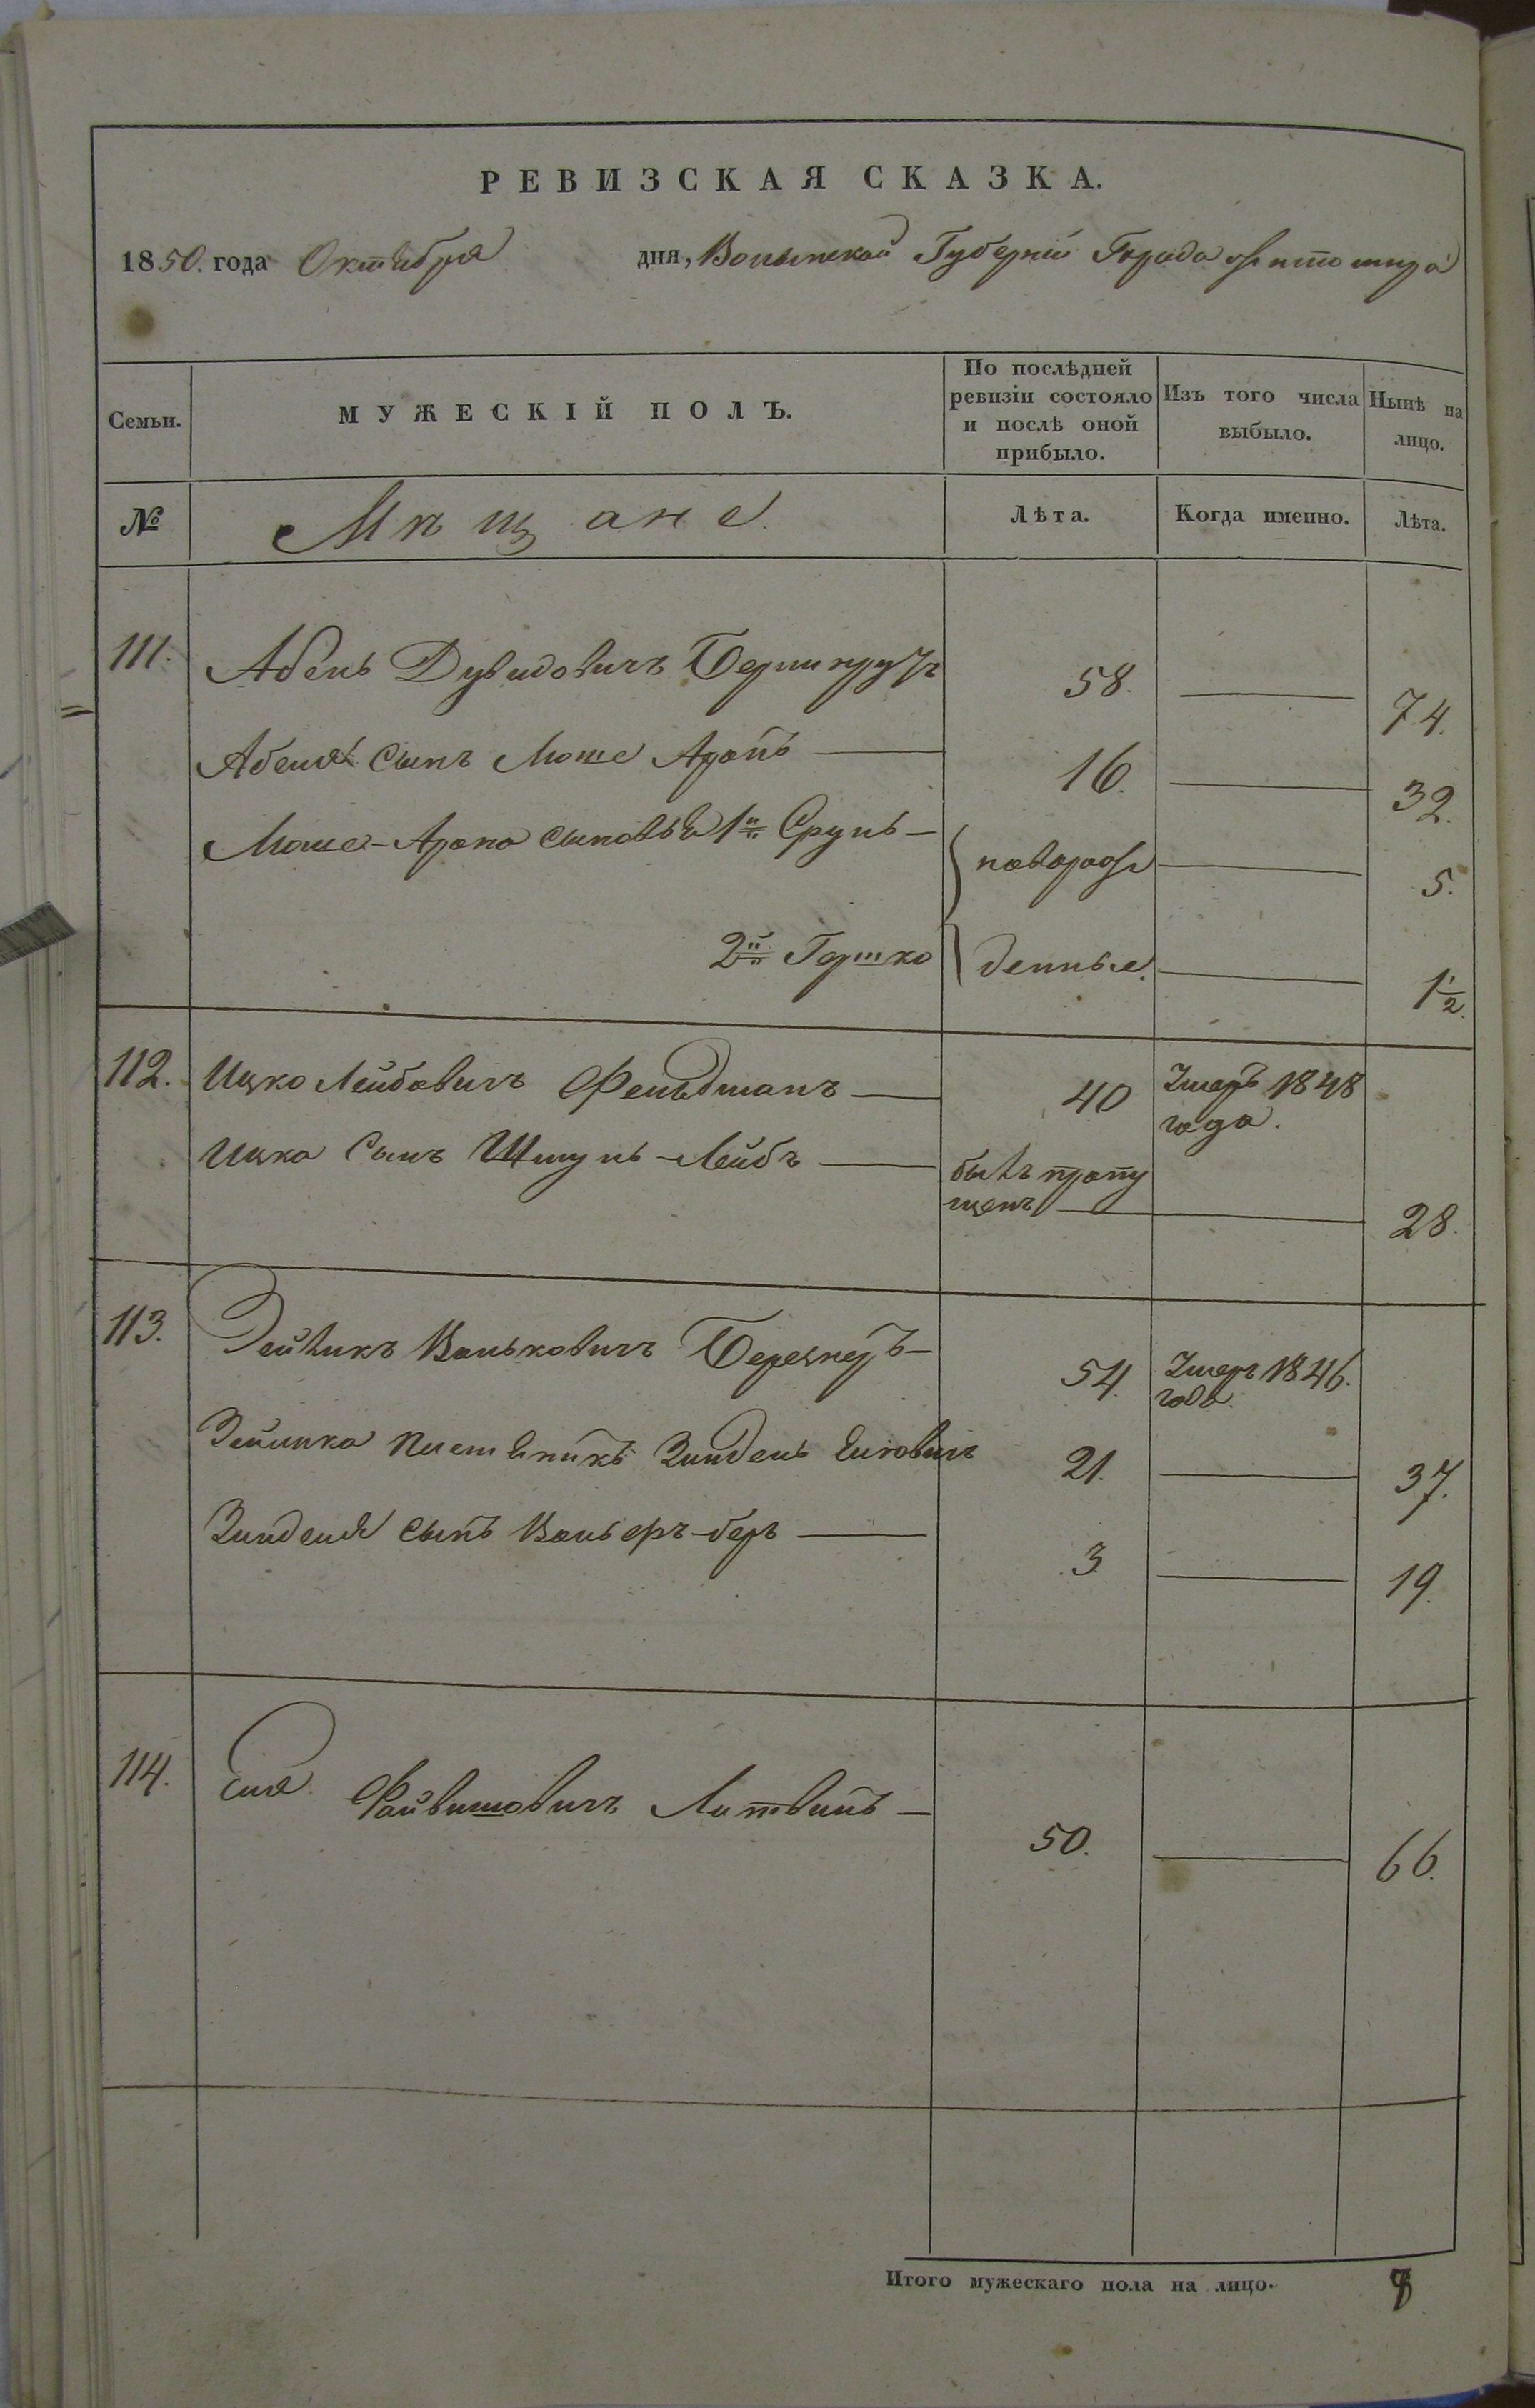 РЕВИЗСКАЯ СКАЗКА.
1850. года Октября дня, Волынской Губерніи Города Житомира
Семьи. МУЖЕСКІЙ ПОЛЪ. По послѣдней ревизіи состояло и послѣ оной прибыло. Изъ того числа выбыло. Нынѣ на лицо.
№ Мѣщане. Лѣта. Когда именно. Лѣта.
111. Абель Дувидовичъ 58. 74.
Абеля сынъ Моше Аронъ 16. 32.
Моше-Арона сыновья 1й Сруль новорож 5.
2й Гершко денные. 1½.
112. Ицко Лейбовичъ Фельдманъ 40 Умеръ 1848 года.
Ицка сынъ Шмуль-Лейбъ былъ пропу
щенъ 28.
113. Зейликъ Вольковичъ 54. Умеръ 1846. года.
Зейлика племѣнникъ Зиндель 21. 37.
Зинделя сынъ Вольфъ-беръ 3. 19.
114. Еля Файвишовичъ Литвинъ 50. 66.
Итого мужескаго пола на лицо.